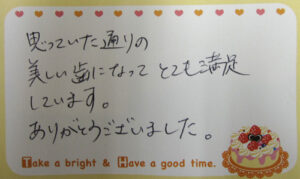 思っていた通りの
美しい歯になって とても満足
しています。
ありがとうございました。
Take a bright & Have a good time.